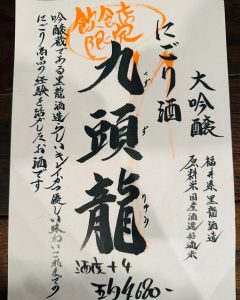 飲食店
限定
大吟醸
にごり酒
九頭龍
くずりゅう
福井県黒龍酒造
原料米国産酒造好適米
吟醸蔵である黒龍酒造らしいキレイかつ優しい味わい
にごり商品の経験を活かしたお酒です
酒度+4